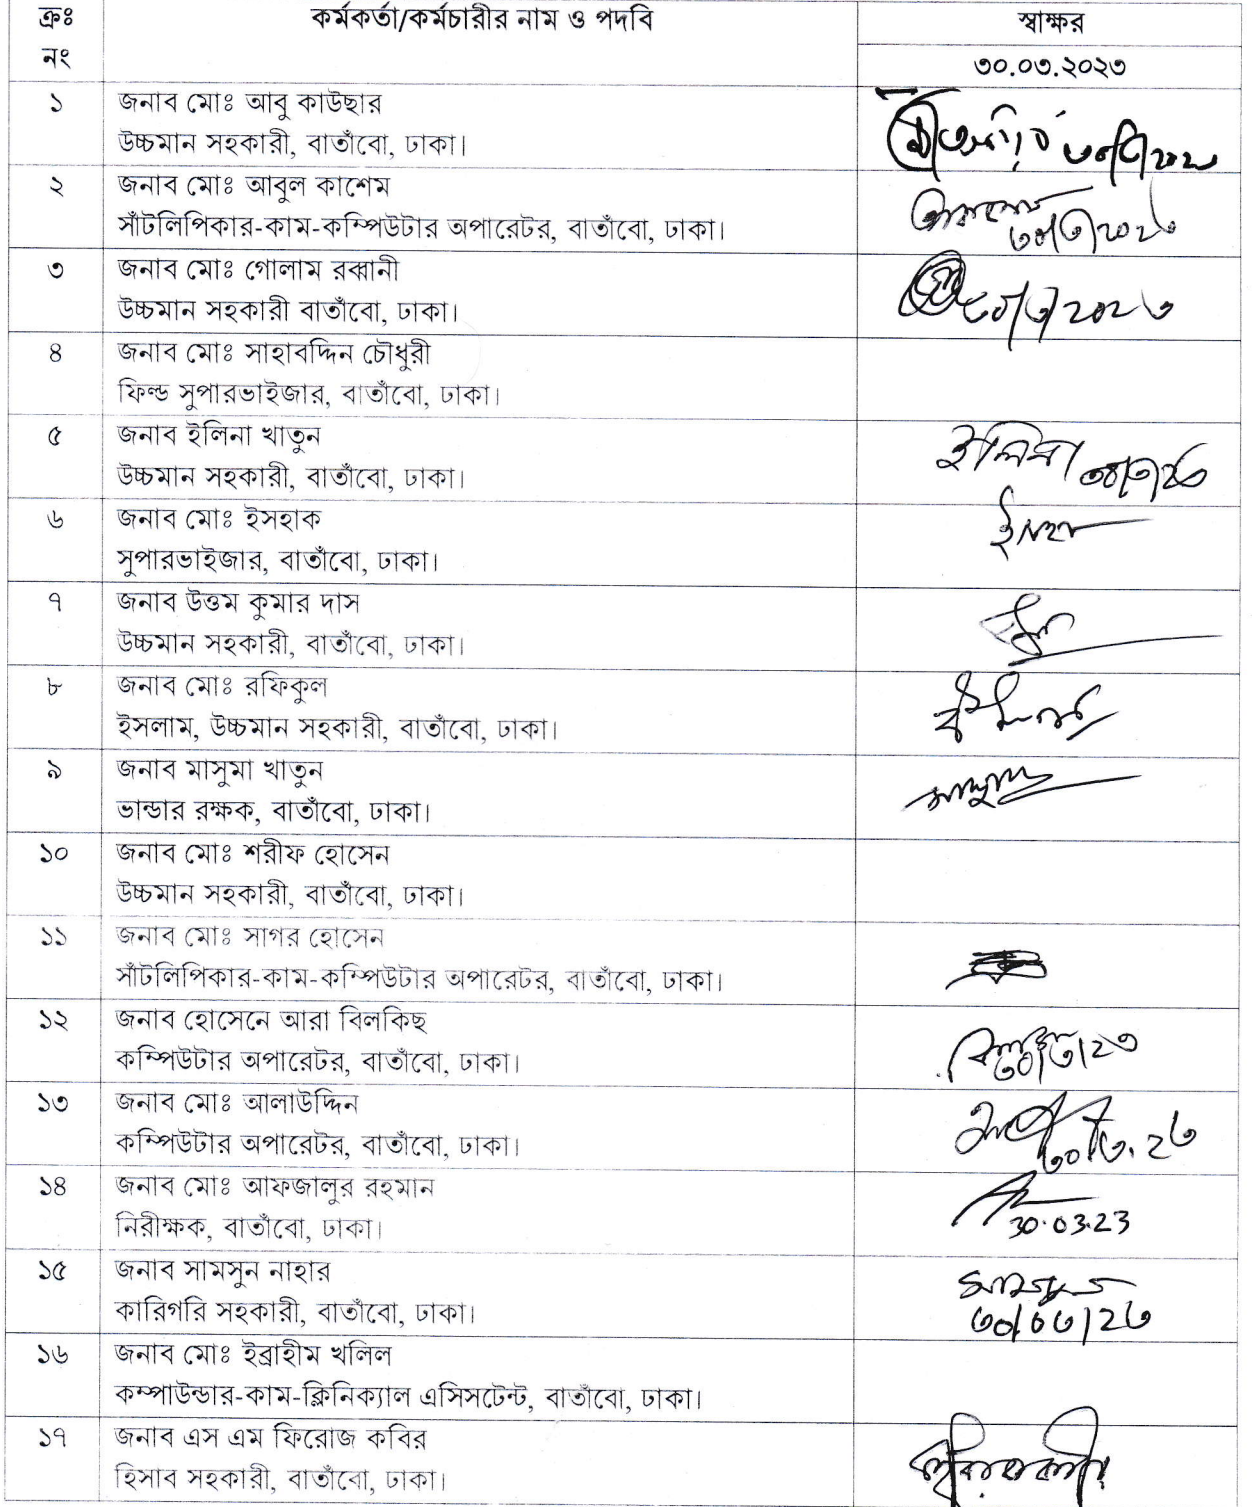 ক্রঃ নং কর্মকর্তা/কর্মচারীর নাম ও পদবি স্বাক্ষর
৩০.০৩.২০২৩
১ জনাব মোঃ আবু কাউছার
উচ্চমান সহকারী, বাতাঁবো, ঢাকা।
২ জনাব মোঃ আবুল কাশেম
সাঁটলিপিকার-কাম-কম্পিউটার অপারেটর, বাতাঁবো, ঢাকা।
৩০/৩/২০২৩
৩ জনাব মোঃ গোলাম রব্বানী
উচ্চমান সহকারী বাতাঁবো, ঢাকা।
৩০/৩/২০২৩
৪ জনাব মোঃ সাহাবদ্দিন চৌধুরী
ফিল্ড সুপারভাইজার, বাতাঁবো, ঢাকা।
৫ জনাব ইলিনা খাতুন
উচ্চমান সহকারী, বাতাঁবো, ঢাকা।
ইলিনা ৩০/৩/২৩
৬ জনাব মোঃ ইসহাক
সুপারভাইজার, বাতাঁবো, ঢাকা।
৭ জনাব উত্তম কুমার দাস
উচ্চমান সহকারী, বাতাঁবো, ঢাকা।
৮ জনাব মোঃ রফিকুল
ইসলাম, উচ্চমান সহকারী, বাতাঁবো, ঢাকা।
৯ জনাব মাসুমা খাতুন
ভান্ডার রক্ষক, বাতাঁবো, ঢাকা।
১০ জনাব মোঃ শরীফ হোসেন
উচ্চমান সহকারী, বাতাঁবো, ঢাকা।
১১ জনাব মোঃ সাগর হোসেন
সাঁটলিপিকার-কাম-কম্পিউটার অপারেটর, বাতাঁবো, ঢাকা।
১২ জনাব হোসেনে আরা বিলকিছ
কম্পিউটার অপারেটর, বাতাঁবো, ঢাকা।
৩০/৩/২৩
১৩ জনাব মোঃ আলাউদ্দিন
কম্পিউটার অপারেটর, বাতাঁবো, ঢাকা।
৩০/৩.২৩
১৪ জনাব মোঃ আফজালুর রহমান
নিরীক্ষক, বাতাঁবো, ঢাকা।
30.03.23
১৫ জনাব সামসুন নাহার
কারিগরি সহকারী, বাতাঁবো, ঢাকা।
৩০/০৩/২৩
১৬ জনাব মোঃ ইব্রাহীম খলিল
কম্পাউন্ডার-কাম-ক্লিনিক্যাল এসিসটেন্ট, বাতাঁবো, ঢাকা।
১৭ জনাব এস এম ফিরোজ কবির
হিসাব সহকারী, বাতাঁবো, ঢাকা।